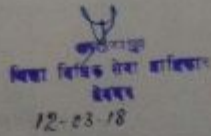 जिला विधिक सेवा प्राधिकार
देवघर
12-03-18